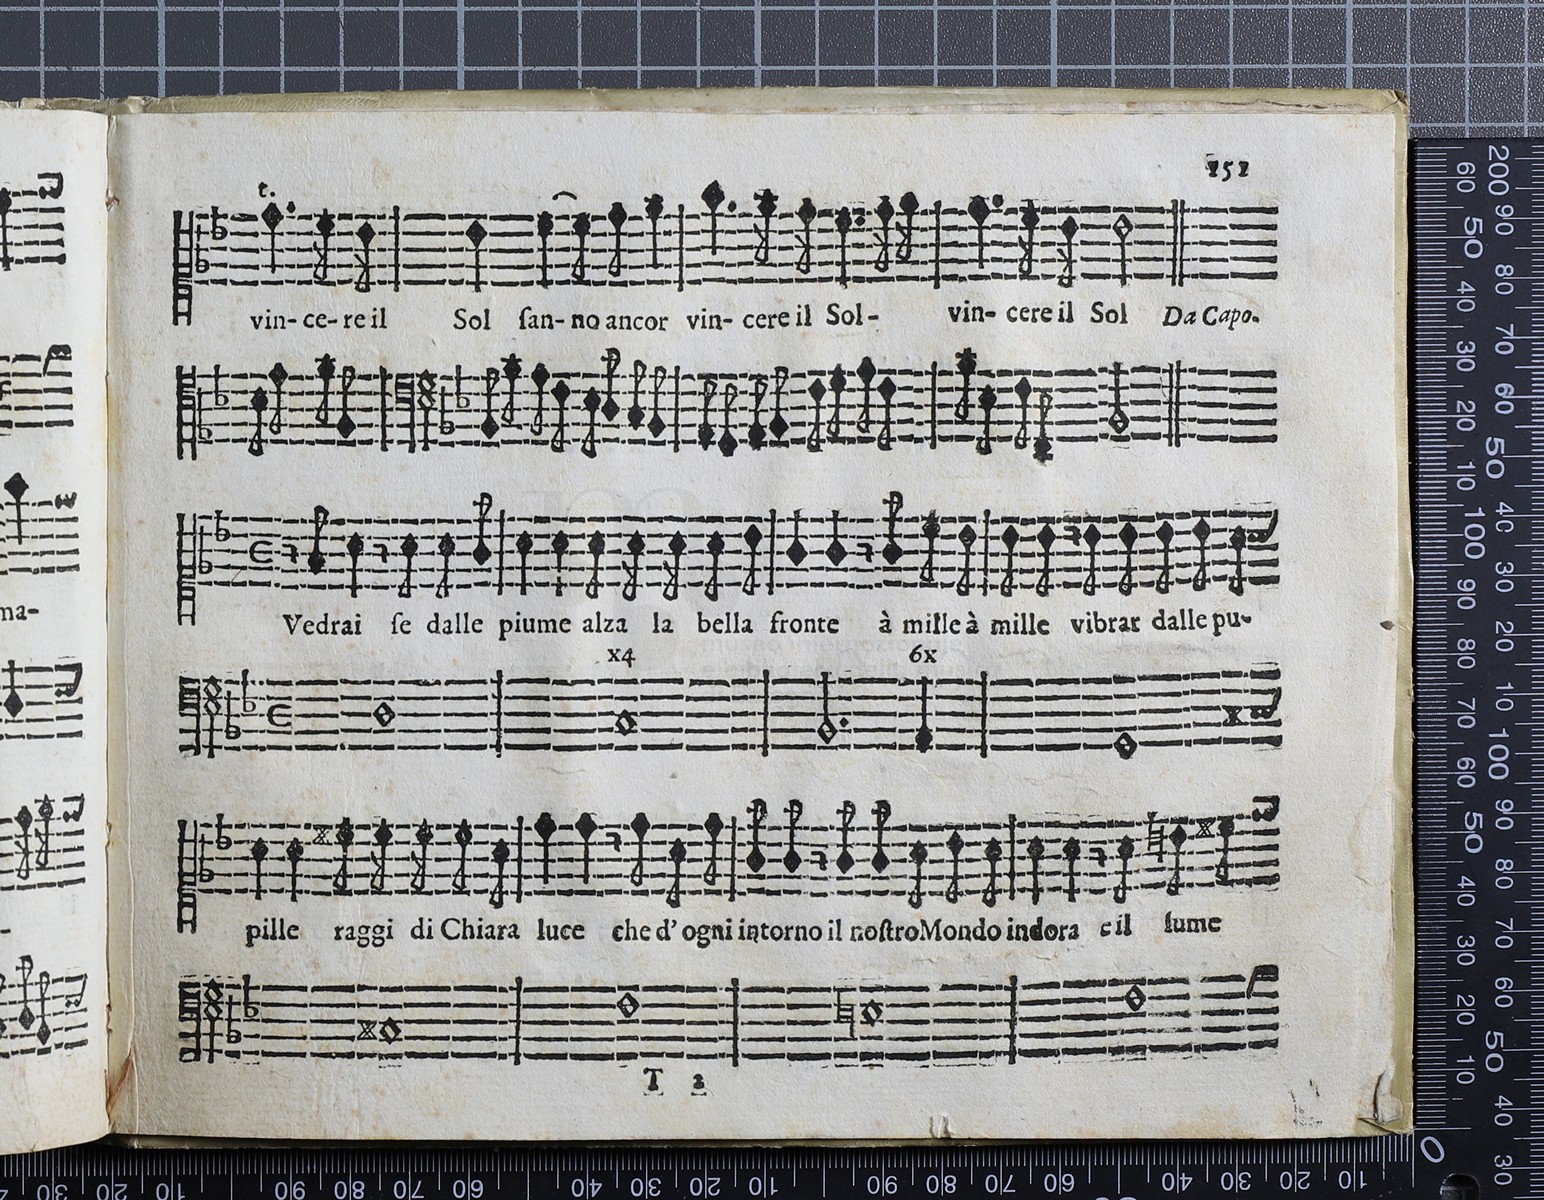 151
t.
vin- ce- re il Sol ſan- no ancor vin- cere il Sol- vin- cere il Sol Da Capo.
Vedrai ſe dalle piume alza la bella fronte à mille à mille vibrar dalle pu-
x4 6x
ma-
pille raggi di Chiara luce che d' ogni intorno il noſtro Mondo indora e il lume
T 2